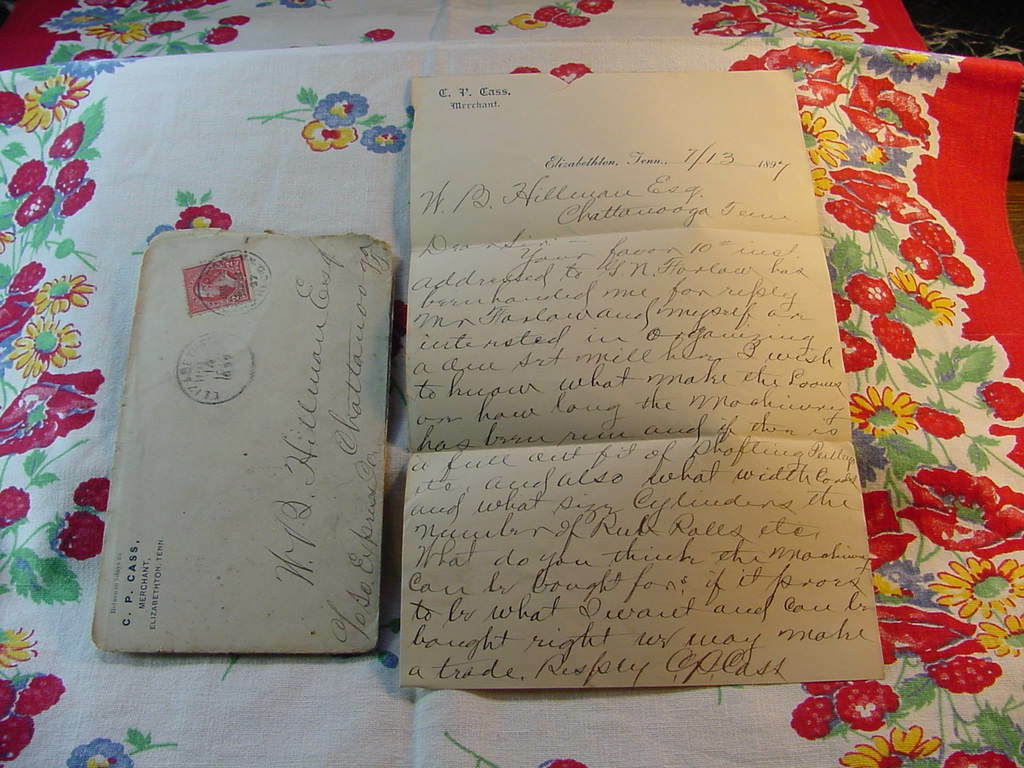 C. P. Cass.
Merchant.
Elizabethton, Tenn., 7/13 1897
W. B. Hillman Esq.
Chattanooga Tenn
Dear Sir - Your favor 10th inst
addressed to N. Farlow has
been handed me for reply
Mr Farlow and myself ar
intersted in organizing
a one set mill here I wish
to know what make the Looms
or how long the Machinery
has been run and if ther is
a full out fit of Shafting Pulleys
etc and also what width Cards
and what size Cylinders the
Number of Rub Rolls etc.
What do you think the Machinery
Can be bought for & if it proves
to be what I want and can be
bought right we may make
a trade. Respfly C. P. Cass
C. P. CASS,
MERCHANT,
ELIZABETHTON, TENN
W. B. Hillman Esq
Chattanooga
So. Express Co.